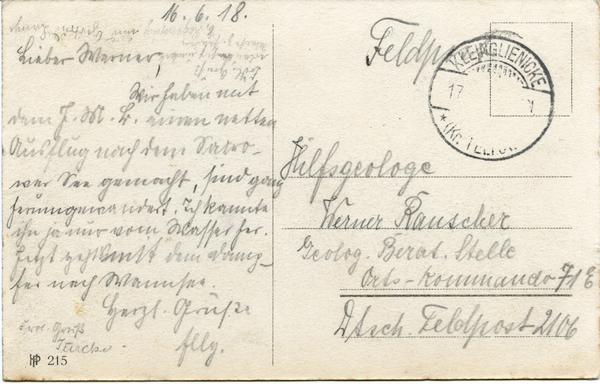 16.6.18.
Lieber Werner,
Wir haben mit
dem J. M. L. einen netten
Ausflug nach dem Sacro-
wer See gemacht, sind ganz
herumgewandert. Ich kannte
ihn ja nur vom Wasser her.
Jetzt geht's mit dem Damp-
fer nach Wannsee.
Herzl. Grüße
Elly.
HP 215
Feldpost
KLEINGLIENICKE
17
*(Kr. TELTOW
Hilfsgeologe
Werner Rauscher
Geolog. Berat. Stelle
Orts-Kommando 71 E
Dtsch. Feldpost 2106